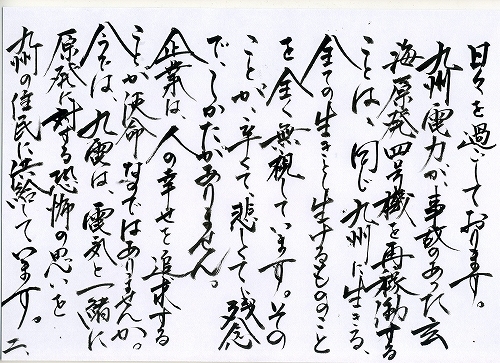 日々を過ごしております。
九州電力が、事故のあった玄
海原発四号機を再稼働する
ことは、同じ九州に生きる、
全ての生きとし生けるもののこと
を全く無視しています。その
ことが、辛くて、悲しくて、残念
で、しかたがありません。
企業は、人の幸せを追求する
ことが使命なのではありませんか。
今では、九電は、電気と一緒に
原発に対する恐怖の思いを
九州の住民に供給しています。二